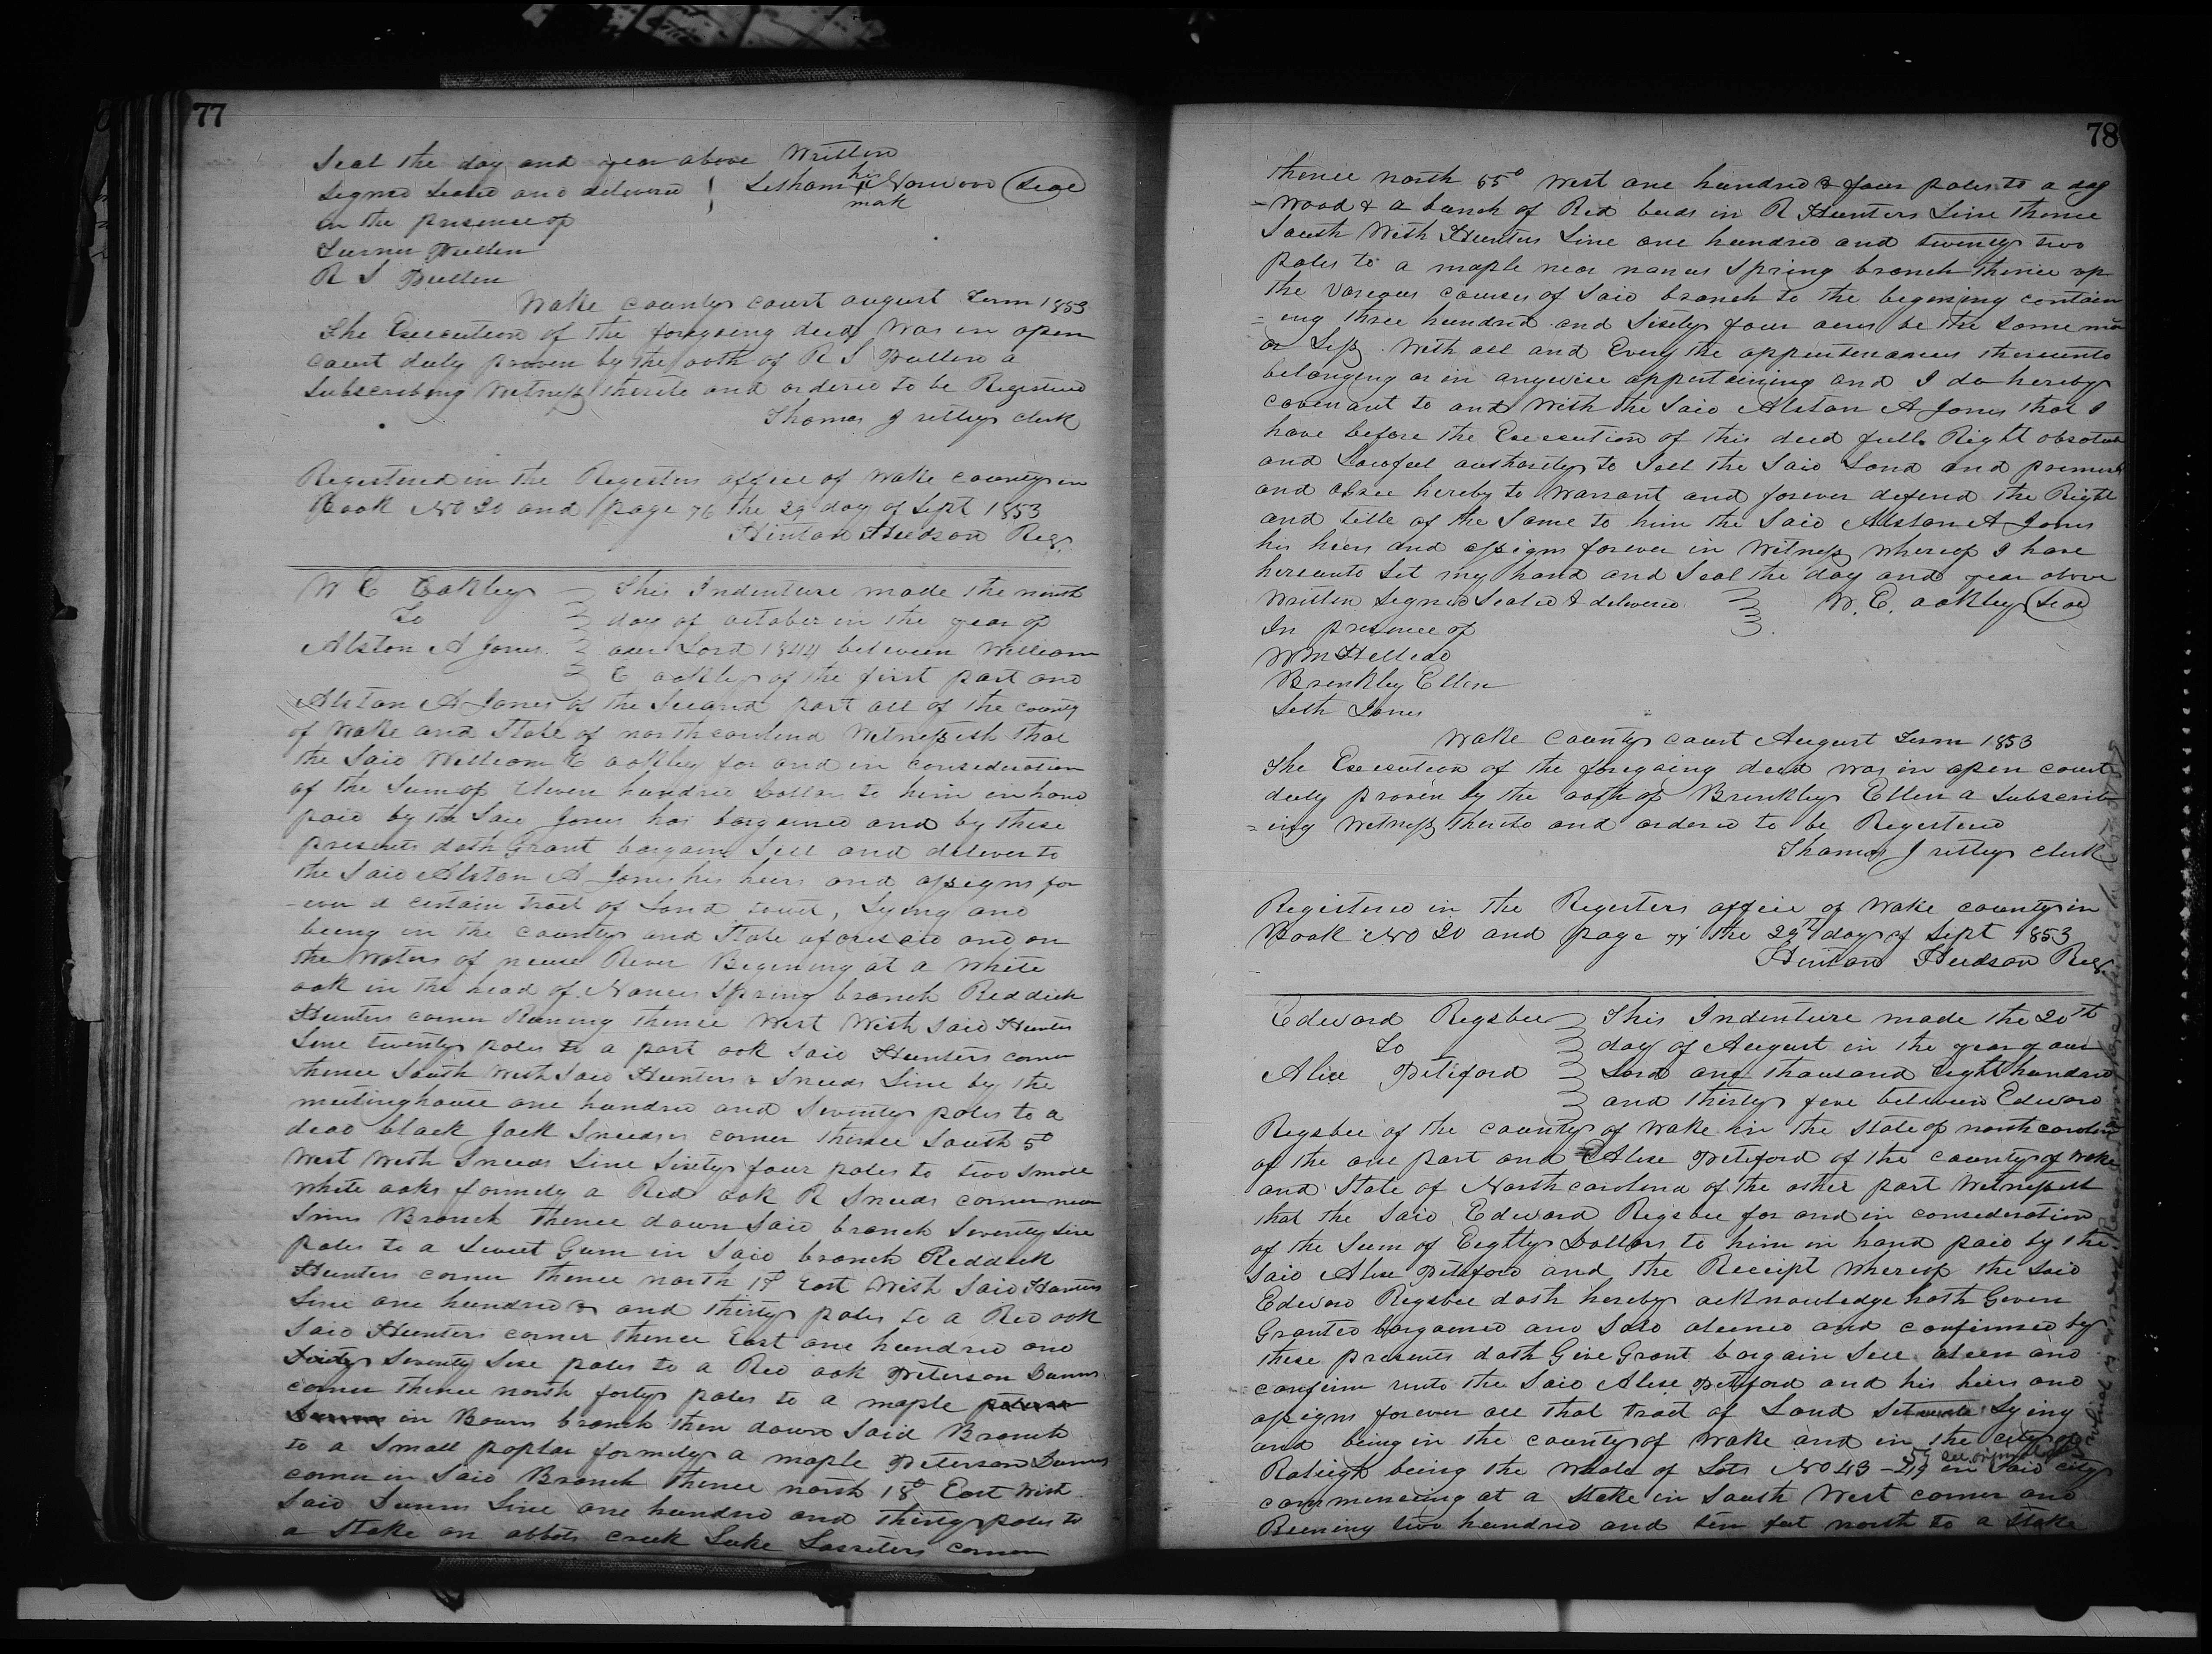 77
Seal the day and year above Written
Signed Sealed and delivered } Lesham his X mark Norwood Seal
in the presence of
Turner Pullen
R S Pullen
Wake county court august Term 1853
The Execution of the foregoing deed was in open
court duly proven by the oath of R S Pullen a
Subscribing Witness thereto and ordered to be Registered
Thomas J utley clerk
Registered in the Registers office of Wake county in
Book No 20 and page 76 the 29 day of Sept 1853
Hinton Hudson Reg.
W E Oakley This Indenture made the ninth
To day of october in the year of
Alston A Jones. our Lord 1844 between William
E oakley of the first part and
Alston A Jones of the Second part all of the county
of Wake and State of north carolina Witnesseth that
the Said William E oakley for and in consideration
of the Sum of Eleven hundred Dollars to him in hand
paid by the Said Jones has bargained and by these
presents doth Grant bargain Sell and deliver to
the Said Alston A Jones his heirs and assigns for
-ever a certain tract of Land towit, Lying and
being in the county and State aforesaid and on
the Waters of neuse River Begining at a White
oak in the head of Nances Spring branch Reddick
Hunters corner Runing thence West With Said Hunters
Line twenty poles to a post oak Said Hunters corner
thence South With Said Hunters & Sneeds Line by the
meetinghouse one hundred and Seventy poles to a
dead black Jack Sneeds corner thence South 5°
West With Sneeds Line Sixty four poles to two Small
White oaks formerly a Red oak R Sneeds corner near
Sims Branch thence down Said branch Seventy Six
poles to a Sweet Gum in Said branch Reddick
Hunters corner thence north 18° East With Said Hunters
Line one hundred & and thirty poles to a Red oak
Said Hunters corner thence East one hundred and
Seventy Six poles to a Red oak Peterson Dunns
corner thence north forty poles to a maple
in Bowrs branch then down Said Branch
to a Small poplar formerly a maple Peterson Dunns
corner in Said Branch thence north 18° East With
Said Dunns Line one hundred and thirty poles to
a Stake on abbots creek Luke Lassiters corner
78
thence north 55° West one hundred & four poles to a dog
-Wood & a bunch of Red buds in R Hunters Line thence
South With Hunters Line one hundred and twenty two
poles to a maple near nances Spring branch thence up
the Various courses of Said branch to the begining contain
=ing three hundred and Sixty four acres be the Same more
or Less. With all and Every the appurtenances thereunto
belonging or in anywise appertaining and I do hereby
covenant to and With the Said Alston A Jones that I
have before the Execution of this deed full Right absolute
and Lawful authority to Sell the Said Land and premises
and agree hereby to Warrant and forever defend the Right
and title of the Same to him the Said Alston A Jones
his heirs and assigns forever in Witness Whereof I have
hereunto Set my hand and Seal the day and year above
Written Signed Sealed & delivered W. E. oakley Seal
In presence of
Brinkley Ellin
Seth Jones
Wake County court August Term 1853
The Execution of the foregoing deed was in open court
duly proven by the oath of Brinkley Ellen a Subscrib
=ing Witness thereto and ordered to be Registered
Thomas J utley clerk
Registered in the Registers office of Wake county in
Book No 20 and page 77 the 29th day of Sept 1853
Hinton Hudson Reg
Edward Rigsbee This Indenture made the 20th
To day of August in the year of our
Alice Petiford Lord one thousand Eight hundred
and thirty five between Edward
Rigsbee of the county of Wake in the State of north carolina
of the one part and Alice Petiford of the county of Wake
and State of North carolina of the other part Witnesseth
that the Said Edward Rigsbee for and in consideration
of the Sum of Eighty Dollars to him in hand paid by the
Said Alice Petiford and the Receipt Whereof the Said
Edward Rigsbee doth hereby acknowledge hath Given
Granted bargained and Sold aliened and confirmed by
these presents doth Give Grant bargain Sell alien and
confirm unto the Said Alice Petiford and his heirs and
assigns forever all that tract of Land Situate Lying
and being in the county of Wake and in the city of
Raleigh being the Whole of Lots No 43 - in Said city
commencing at a Stake in South West corner and
Runing two hundred and ten feet north to a Stake